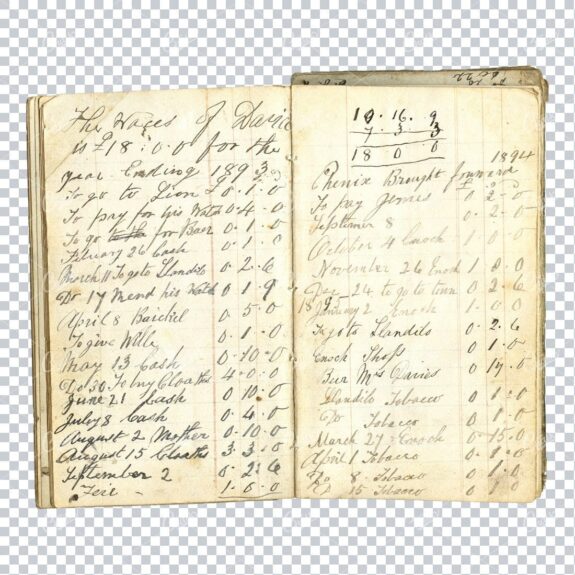 The Wages of David
is £18 : 0 : 0 for the
year Ending 1893
To go to Lion £ 0 . 1 . 0
To pay for his Watch 0 . 4 . 0
To go for Baer 0 . 1 . 0
February 26 Cash 0 . 1 . 0
March 11 To go to Llandilo 0 . 2 . 6
Do 17 Mend his Watch 0 . 1 . 9
April 8 0 . 5 . 0
To give Willy 0 . 1 . 0
May 13 Cash 0 . 10 . 0
Do 30 To buy Cloaths 4 . 0 . 0
June 21 Cash 0 10 . 0
July 8 Cash 0 . 4 . 0
August 2 Mother 0 . 10 . 0
August 15 Cloaths 3 . 3 . 0
September 2 0 . 2 . 6
1 . 0 . 0
10 . 16 . 9
7 . 3 . 3
18 0 0
1894
Brought forward
To pay James 0 2 0
September 8 0 . 2 . 0
October 4 Enoch 1 0 . 0
November 26 Enoch 1 . 0 . 0
Dec 24 to go to town 0 . 2 . 6
January 2 Enoch 1 . 0 . 0
To go to Llandilo 0 . 2 . 6
Enoch Shop 0 . 1 . 0
Mrs Davies 0 . 14 . 0
Llandilo Tobacco 0 1 . 0
Do Tobacco 0 . 1 . 0
March 27 Enoch 0 . 15 . 0
April 1 Tobacco 0 . 1 . 0
Do 8 . Tobacco 0 . 1 . 0
Do 15 Tobacco 0 1 0